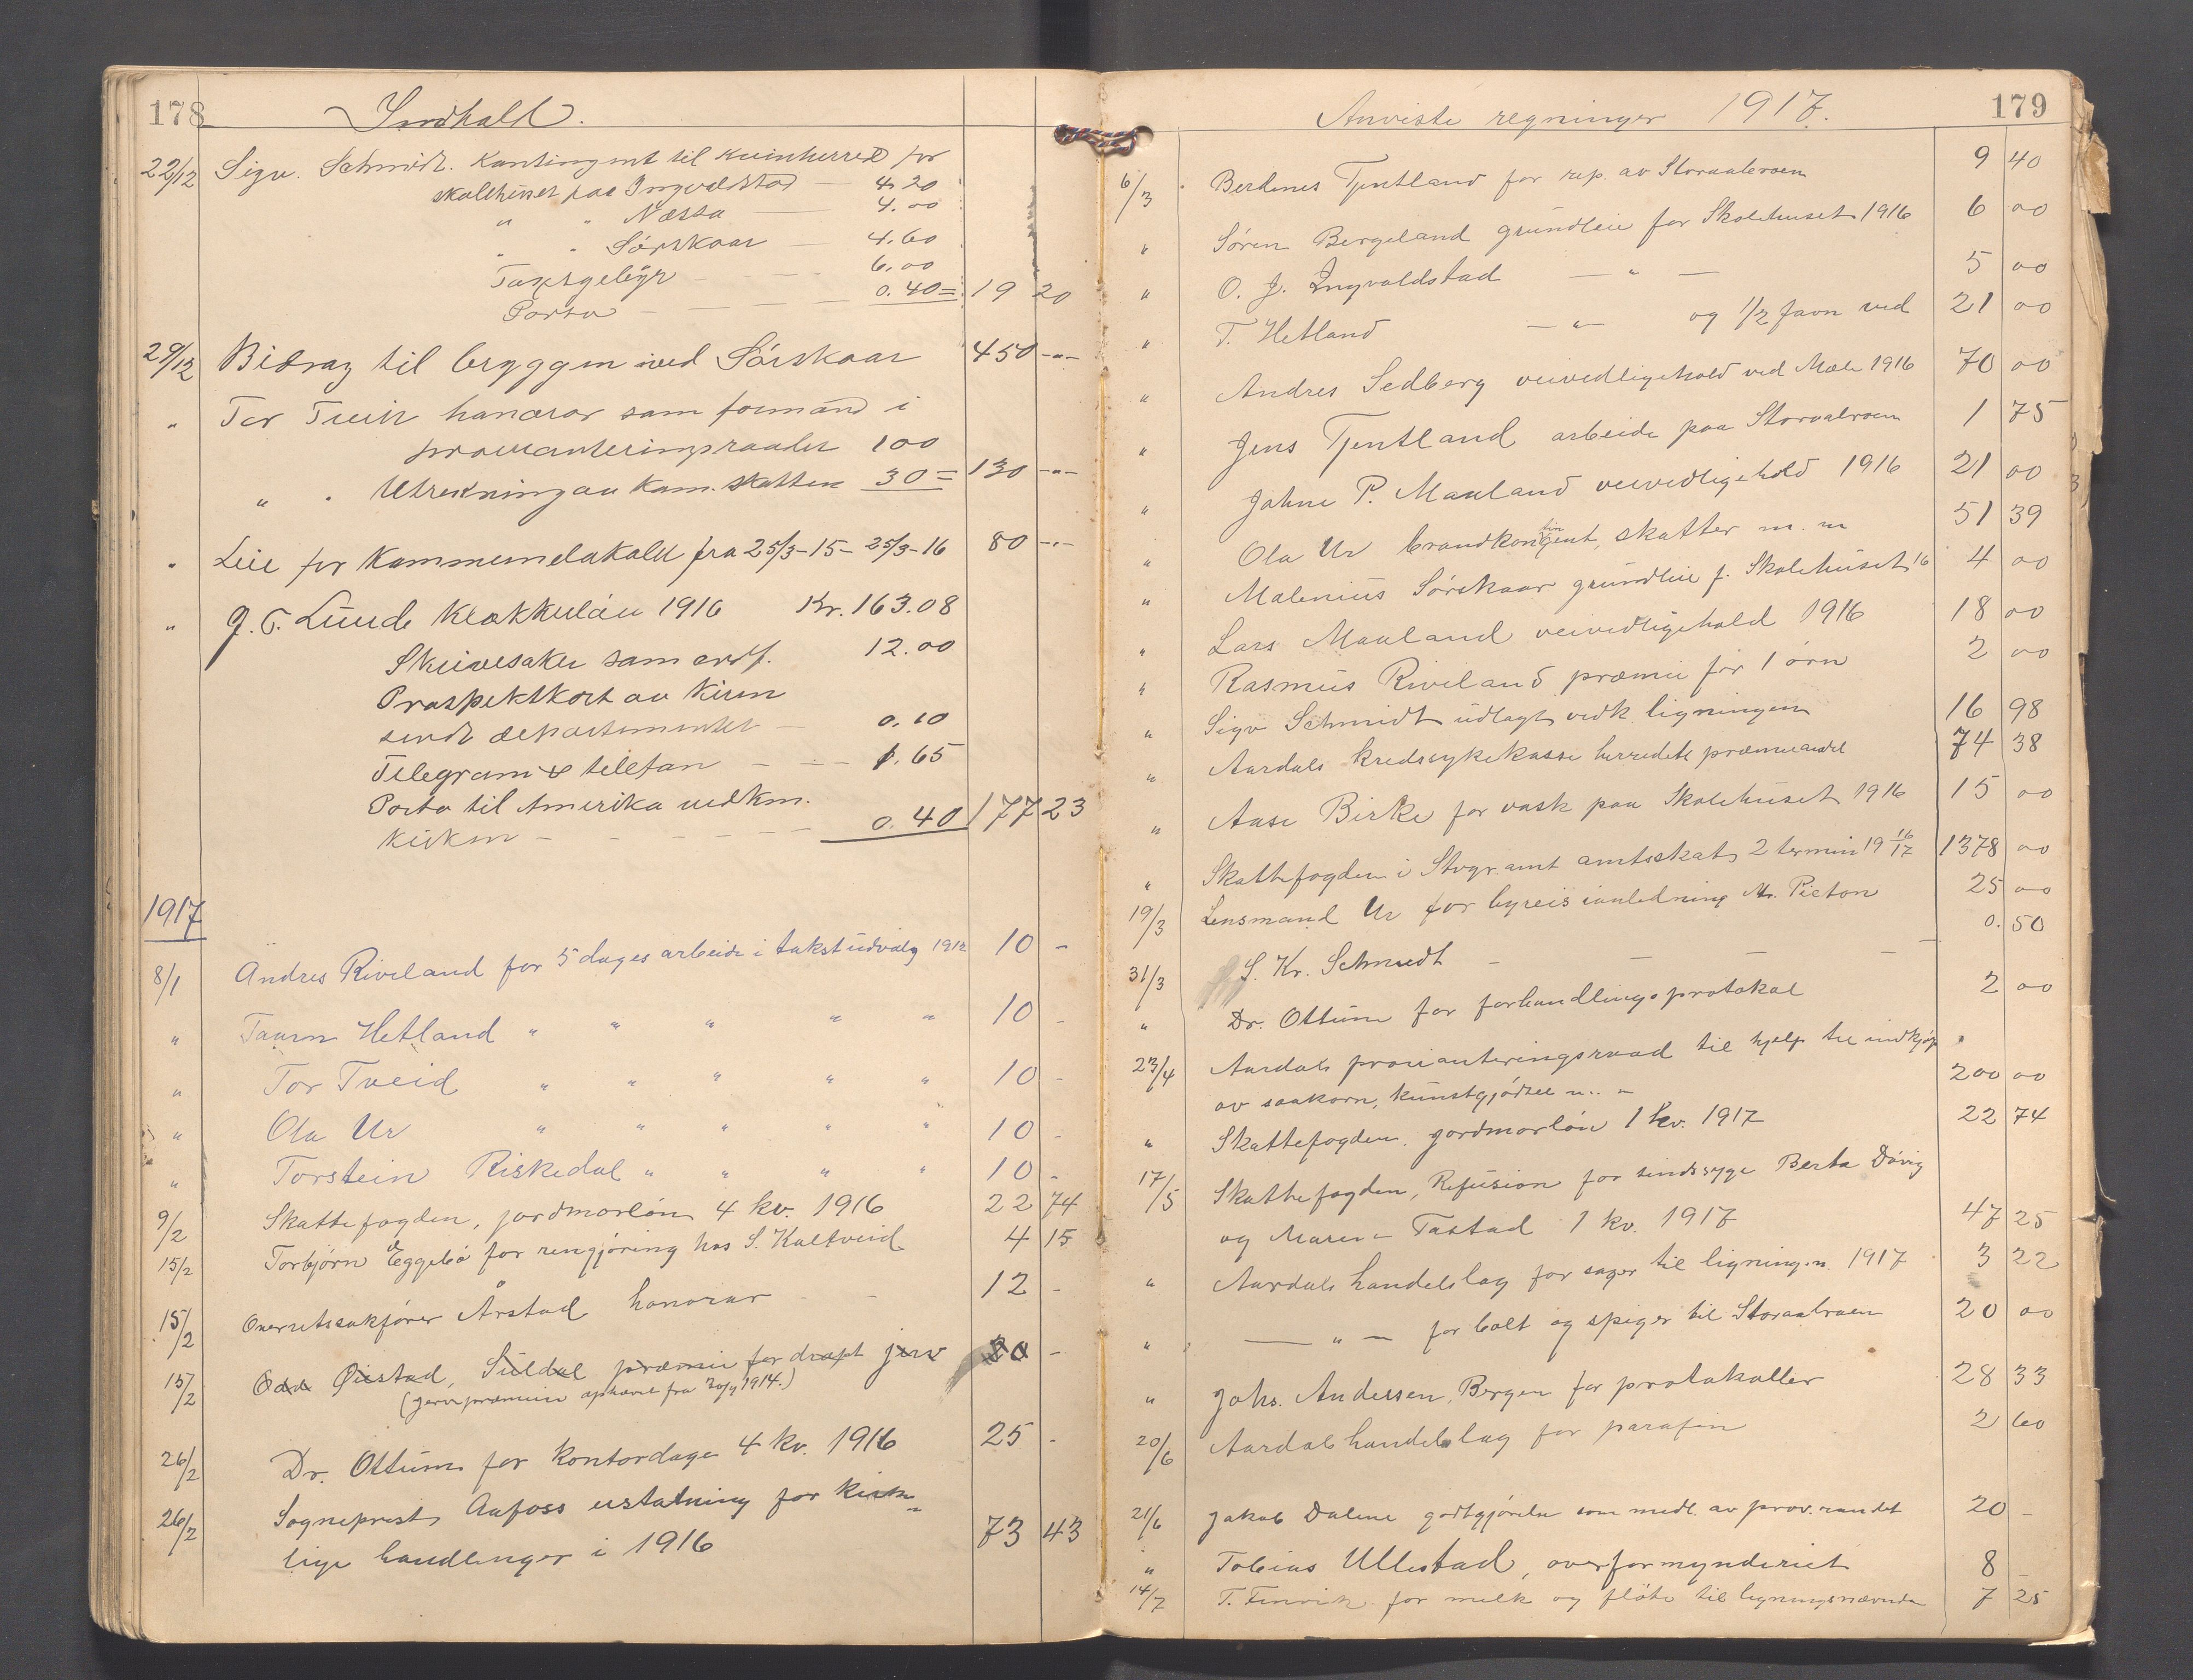 178 Indhald.
22/12 Sigv. Schmidt. Kontingent til Kvinherred for
skolehuset paa Ingvaldstad — 4.20
" " Nessa — 4.00
" " Sörskaar — 4.60
Taxtgebyr - - - 6.00
Porto - - - 0.40= 19 20
29/12 Bidrag til bryggen ved Sörskaar 450 -"-
" Tor Tveit honorar som formand i
provianteringsraadet 100
" " Utrekning av kom. skatten 30= 130 -"-
" Leie for Kommunelokalet fra 25/3-15- 25/3-16 80 -"-
" G. T. Lunde Klokkerlön 1916 Kr. 163.08
Skrivesaker som ordf. 12.00
Prospektkort av kirken
sendt departementet - 0.10
Telegram & telefon - - - 1.65
Porto til Amerika vedkm.
kirken - - - - - - 0.40 177 23
1917
8/1 Andres Riveland for 5 dages arbeide i takstudvalg 1912 10 -
" Taarn Hetland " " " " " 10 -
" Tor Tveid " " " " " 10 -
" Ola Ur " " " " " 10 -
" Torstein Riskedal " " " " 10 -
9/2 Skattefogden, jordmorlön 4 kv. 1916 22 74
15/2 Torbjørn Eggebö for rengjøring hos S. Kaltveid 4 15
15/2 Overretssakfører Årstad honorar - - 12 -
15/2 Odd Øiestad, Suldal præmie for dræpt jerv 20 -
(Jervepræmien ophævet fra 30/9 1914.)
26/2 Dr. Ottum for kontordage 4 kv. 1916 25 -
26/2 Sogneprest Aafoss erstatning for kirke=
lige handlinger i 1916 73 43
Anviste regninger 1917. 179
6/3 Berdines Tjentland for rep. av Storaabroen 9 40
" Søren Bergeland grundleie for Skolehuset 1916 6 00
" O. J. Ingvaldstad — " — 5 00
" T. Hetland — " — og 1/2 favn ved 21 00
" Andres Sedberg veivedligehold ved Mæle 1916 70 00
" Jens Tjentland arbeide paa Storaabroen 1 75
" Johne P. Maaland veivedligehold 1916 21 00
" Ola Ur brandkontingent, skatter m. m 51 39
" Malenius Sørskaar grundleie f. Skolehuset 16 4 00
" Lars Maaland veivedligehold 1916 18 00
" Rasmus Riveland præmie for 1 ørn 2 00
" Sigv Schmidt udlagt vedk. ligningen 16 98
" Aardals kredssykekasse herredets præmieandel 74 38
" Aase Birke for vask paa Skolehuset 1916 15 00
" Skattefogden i Stvgr. amt amtsskat 2 termin 19 16/17 1378 00
19/3 Lensmand Ur for byreis i anledning Mr. Picton 25 00
31/3 S. Kr. Schmidt - - - - 0. 50
" Dr. Ottum for forhandlingsprotokol 2 00
23/4 Aardals provianteringsraad til hjelp til indkjøp
av saakorn, kunstgjødsel m. m 200 00
" Skattefogden. jordmorlön 1 kv. 1917 22 74
17/5 Skattefogden, Refusion for sindssyge Berta Døvig
og Maren Tastad 1 kv. 1917 47 25
" Aardals handelslag for sager til ligningen. 1917 3 22
" — " — for bolt og spiger til Storaabroen 20 00
" Johs. Andersen, Bergen for protokoller 28 33
20/6 Aardals handelslag for parafin 2 60
21/6 Jakob Dalene godtgjörelse som medl. av prov. raadet 20 -
" Tobias Ullestad, overformynderiet 8 -
14/7 T. Finvik for melk og fløte til ligningsnævnden 7 25